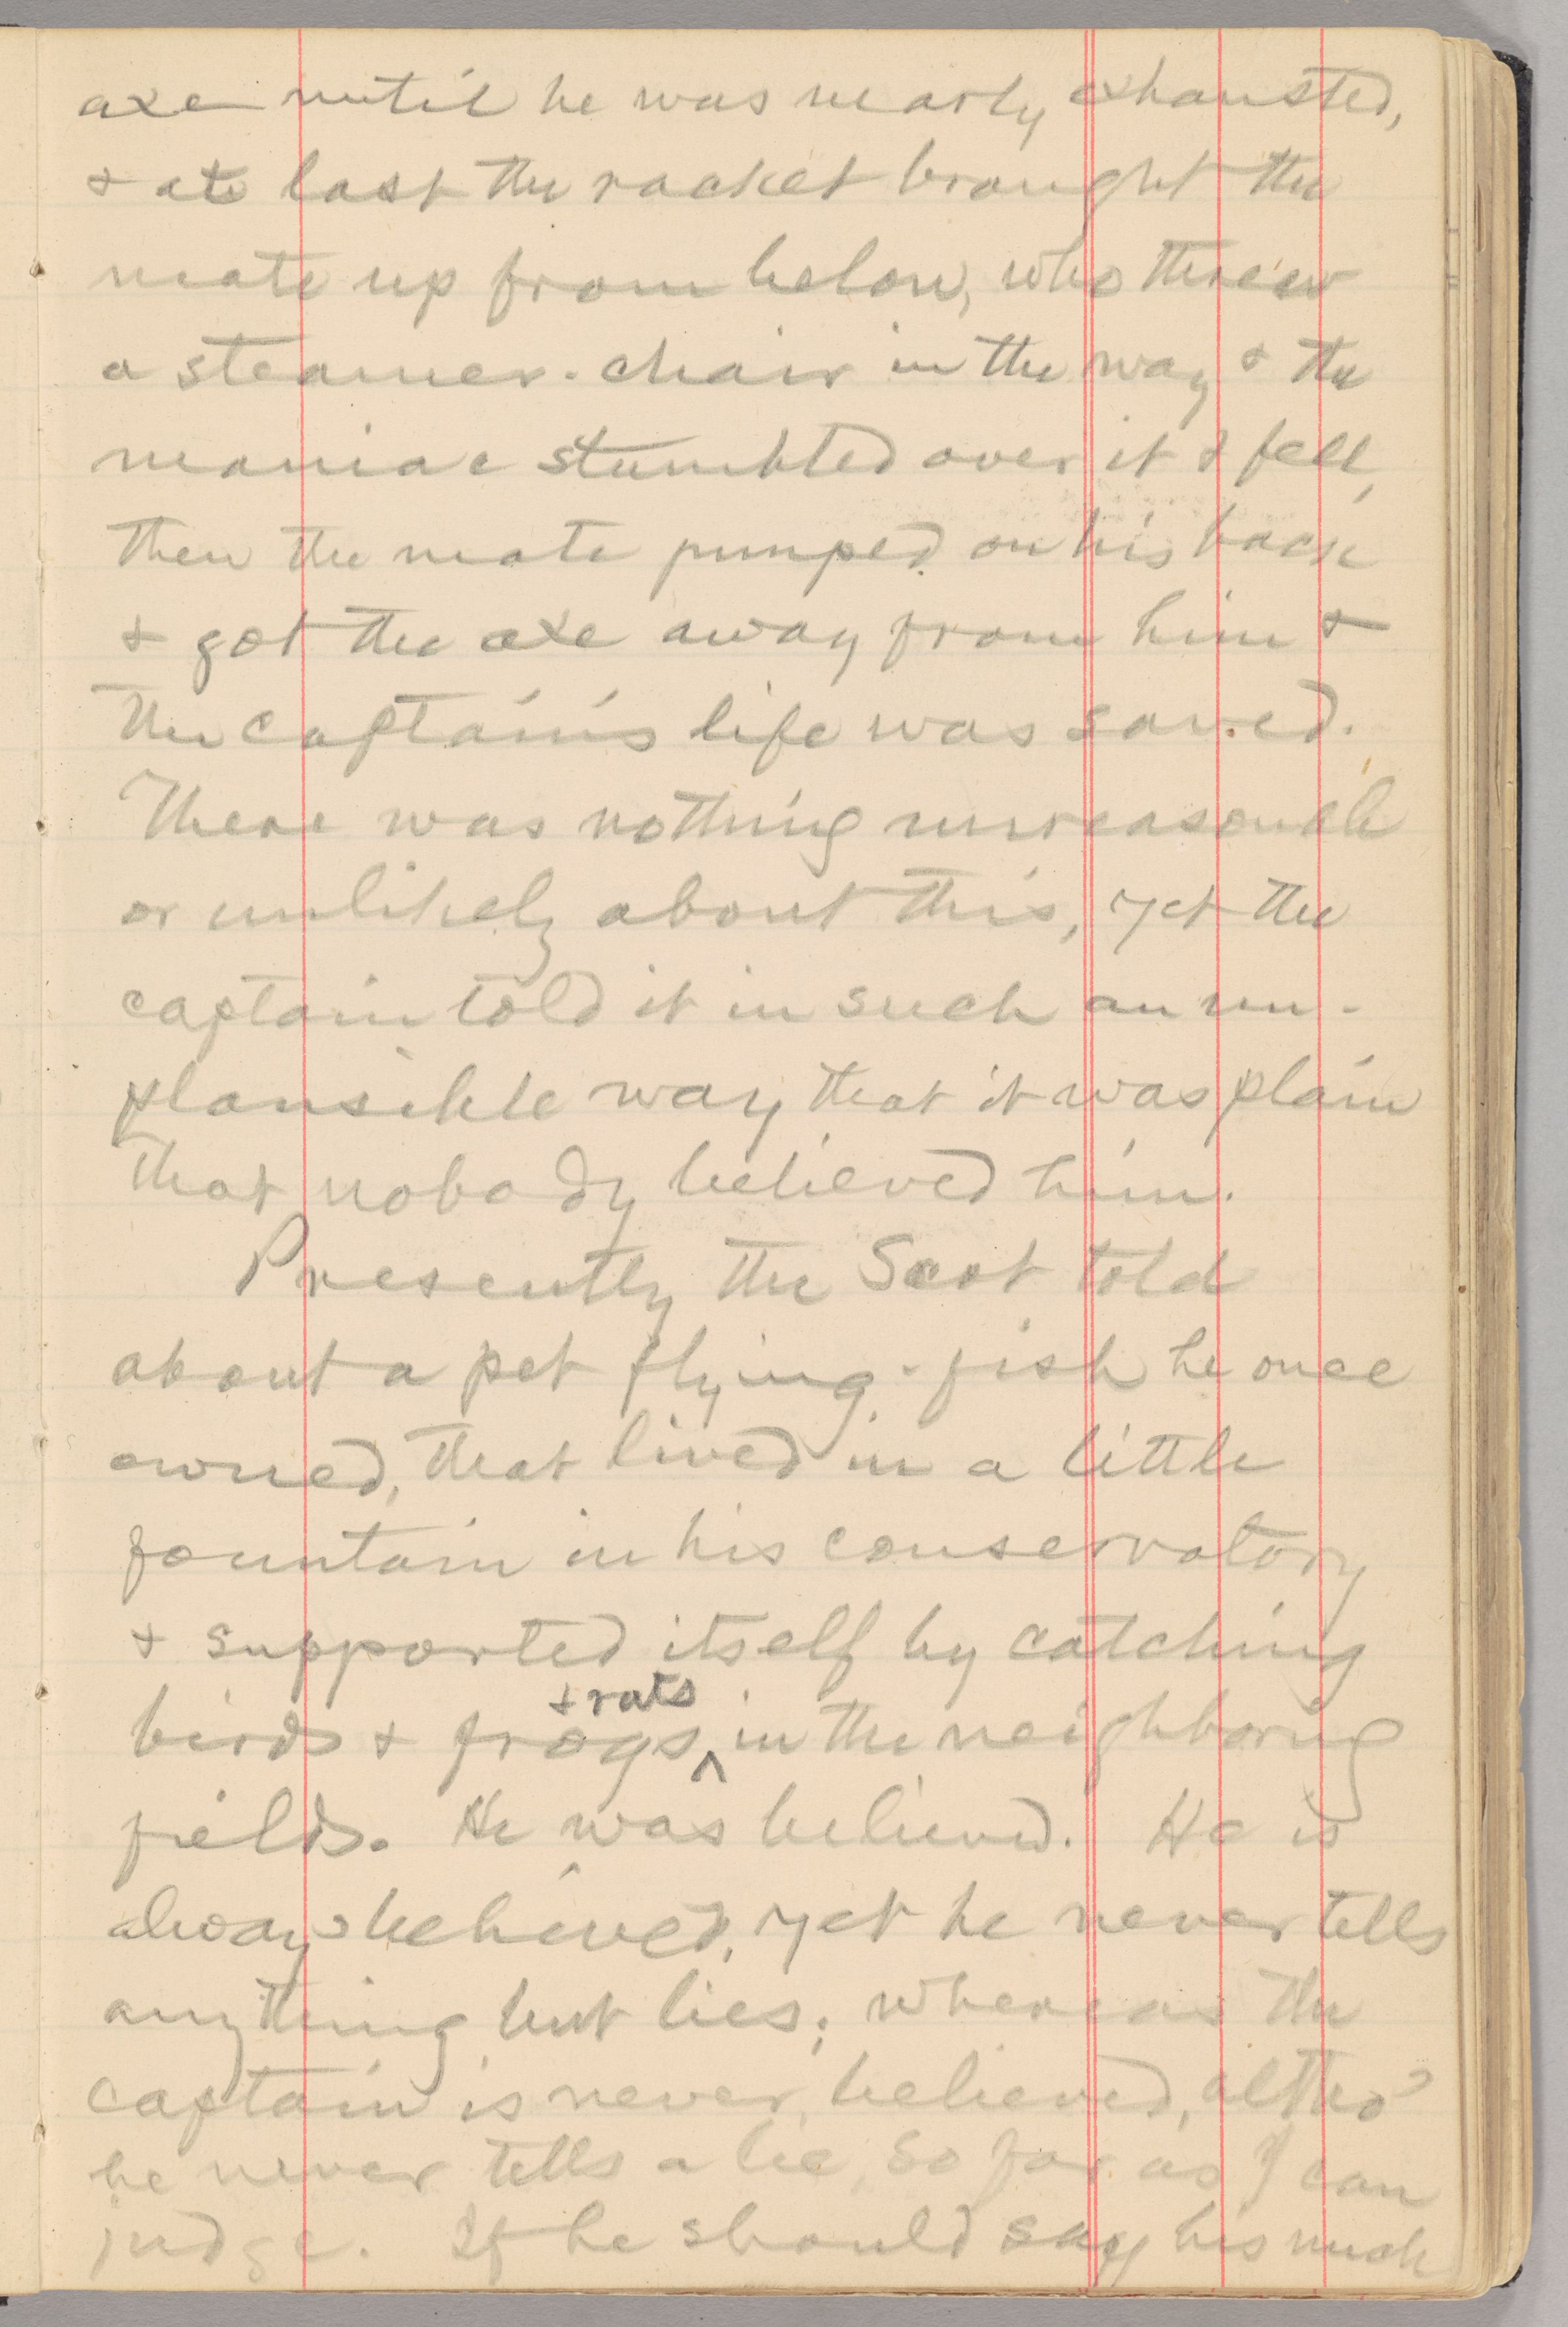 axe until he was nearly exhausted,
& at last the racket brought the
mate up from below, who threw
a steamer-chair in the way & the
maniac stumbled over it & fell,
then the mate jumped on his back
& got the axe away from him &
the captain's life was saved.
There was nothing unreasonable
or unlikely about this, yet the
captain told it in such an un-
plausible way that it was plain
that nobody believed him.
Presently the Scot told
about a pet flying-fish he once
owned, that lived in a little
fountain in his conservatory
& supported itself by catching
birds & frogs & rats in the neighboring
fields. He was believed. He is
always believed, yet he never tells
anything but lies; whereas the
captain is never believed, altho'
he never tells a lie, so far as I can
judge. If he should say his uncle